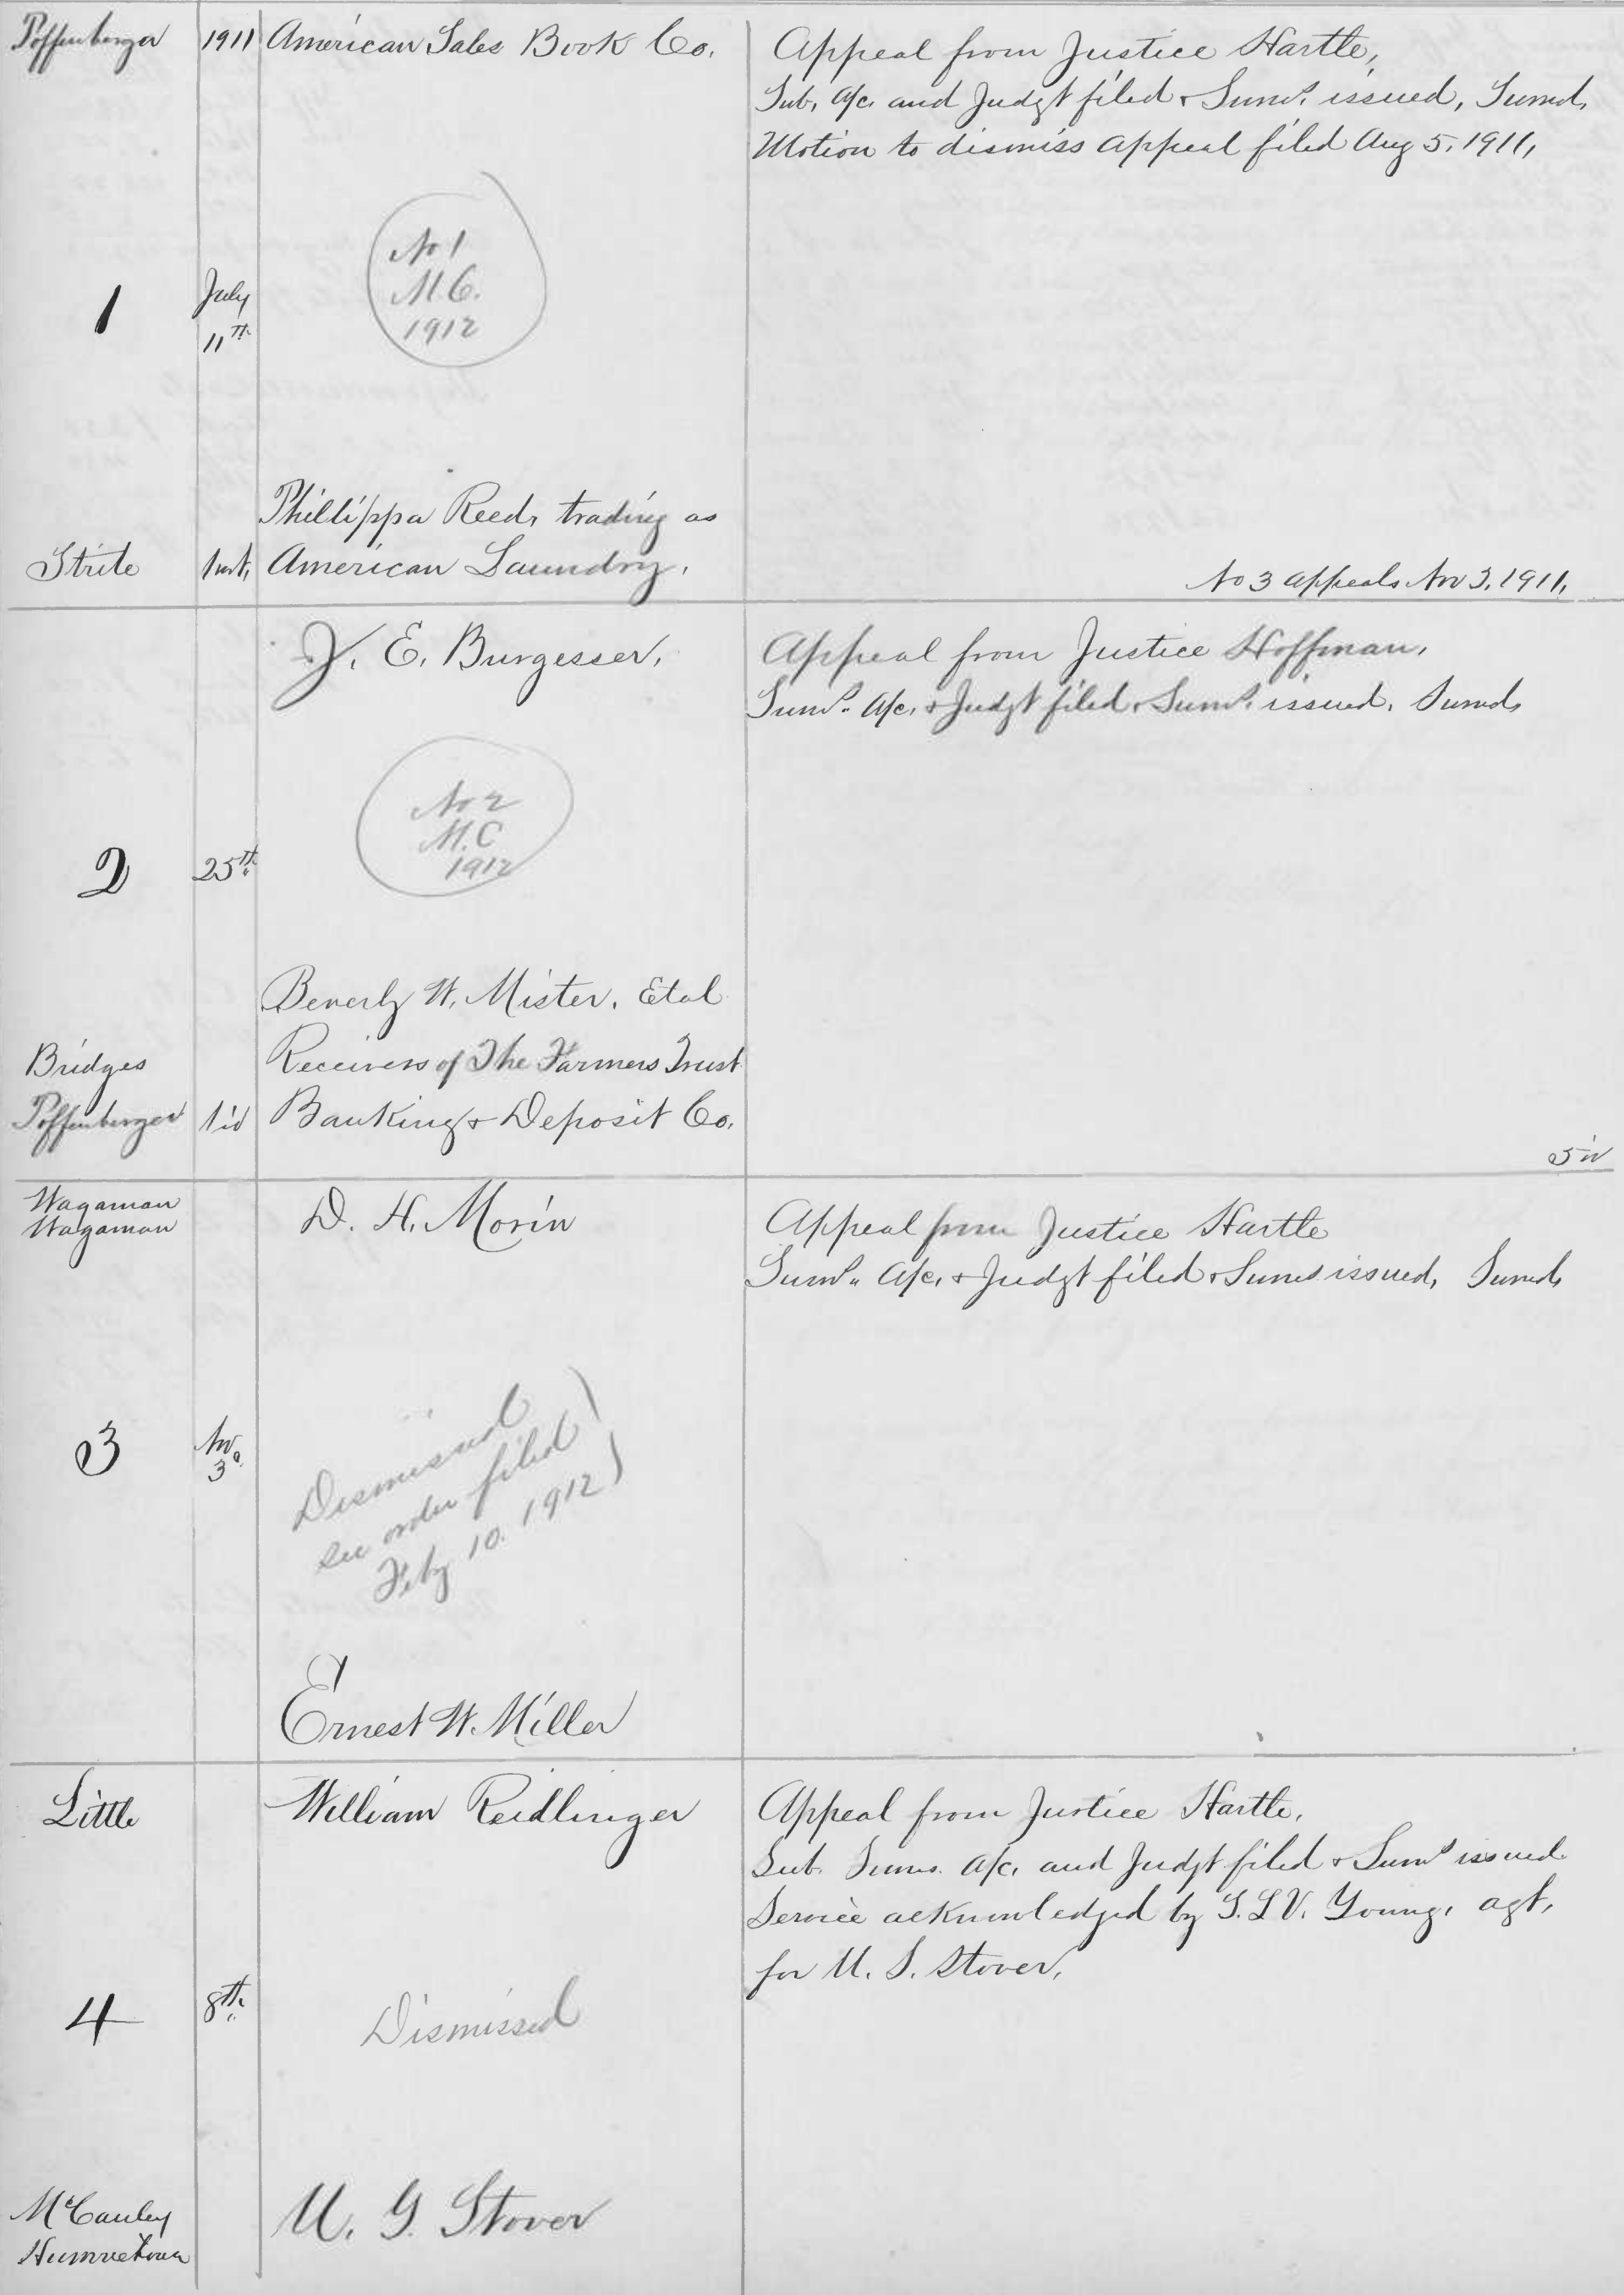 Poffenberger 1911 American Sales Book Co. Appeal from Justice Hartle,
Sub, a/c and Judgt filed & Sums. issued, Sumd,
Motion to dismiss appeal filed Aug 5, 1911,
No 1
M.C.
1912
1 July
11th
Phillippa Reed, trading as
Strite American Laundry,
No 3 appeals Nov 3, 1911,
J. E. Burgesser, Appeal from Justice Hoffman,
Sums. a/c, & Judgt filed & Sums. issued, Sumd,
No 2
M.C
1912
2 25th
Beverly W. Mister, Etal
Bridges Receivers of The Farmers Trust
Poffenberger Banking & Deposit Co.
Wagaman D. H. Morin Appeal from Justice Hartle
Wagaman
Sums. a/c, & Judgt filed & Sums issued, Sumd,
3 Nov
3d
Dismissed
see order filed
Feby 10. 1912
Ernest W. Miller
Little William Reidlinger Appeal from Justice Hartle,
Sub. Sums. a/c, and Judgt filed & Sums issued
Service acknowledged by G. L V. Young, agt,
for U. S. Stover,
4 8th
Dismissed
McCauley U. G. Stover